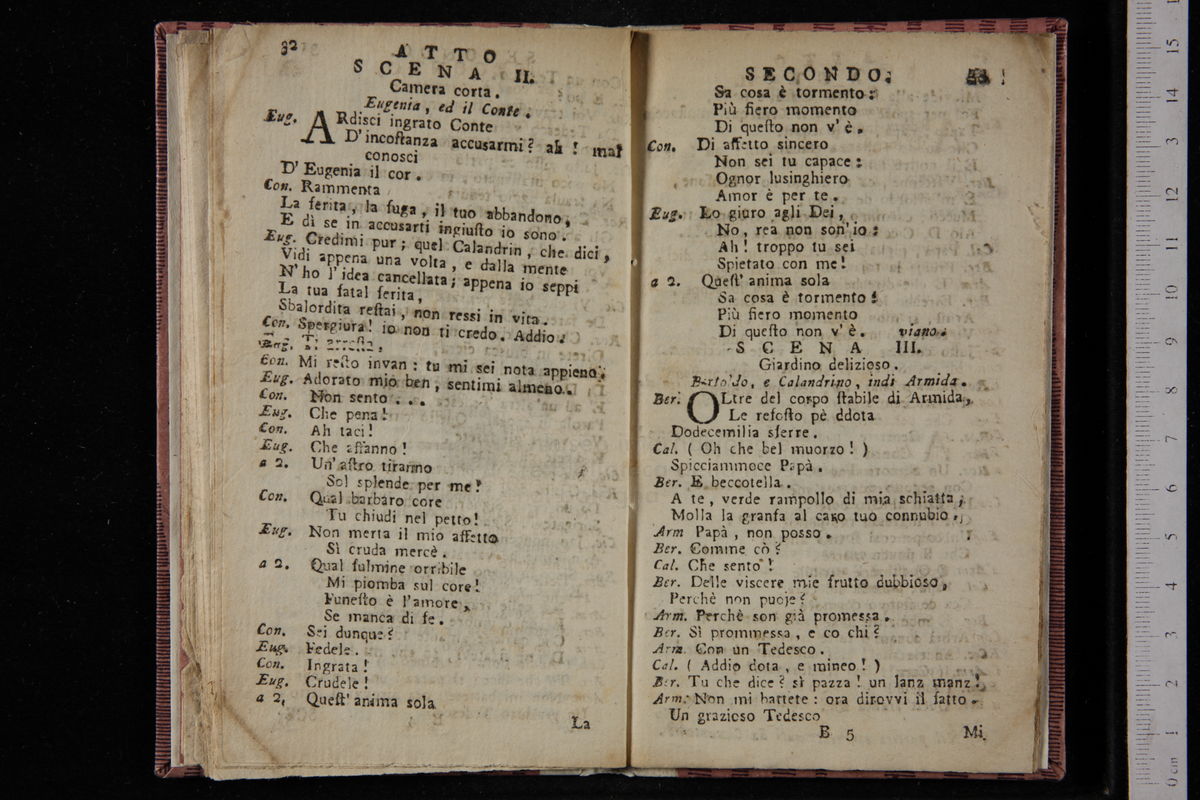 32
ATTO
SCENA II.
Camera corta.
Eugenia, ed il Conte.
Eug. ARdisci ingrato Conte
D'incoſtanza accusarmi? ah! mal
conosci
D'Eugenia il cor.
Con. Rammenta
La ferita, la fuga, il tuo abbandono,
E dì se in accusarti ingiuſto io sono.
Eug. Credimi pur; quel Calandrin, che dici,
Vidi appena una volta, e dalla mente
N'ho l'idea cancellata; appena io seppi
La tua fatal ferita,
Sbalordita reſtai, non ressi in vita.
Con. Spergiura! io non ti credo. Addio.
Eug. T'arreſta,
Con. Mi reſto invan: tu mi sei nota appieno.
Eug. Adorato mio ben, sentimi almeno.
Con. Non sento...
Eug. Che pena!
Con. Ah taci!
Eug. Che affanno!
a 2. Un'aſtro tiranno
Sol splende per me!
Con. Qual barbaro core
Tu chiudi nel petto!
Eug. Non merta il mio affetto
Sì cruda mercè.
a 2. Qual fulmine orribile
Mi piomba sul core!
Funeſto è l'amore,
Se manca di fe.
Con. Sei dunque?
Eug. Fedele.
Con. Ingrata!
Eug. Crudele!
a 2. Queſt'anima sola
La
SECONDO.
Sa cosa è tormento:
Più fiero momento
Di queſto non v'è.
Con. Di affetto sincero
Non sei tu capace:
Ognor lusinghiero
Amor è per te.
Eug. Lo giuro agli Dei,
No, rea non son'io:
Ah! troppo tu sei
Spietato con me!
a 2. Queſt'anima sola
Sa cosa è tormento!
Più fiero momento
Di queſto non v'è. viano.
SCENA III.
Giardino delizioso.
Bertoldo, e Calandrino, indi Armida.
Ber. OLtre del corpo ſtabile di Armida,
Le refoſto pè ddota
Dodecemilia sferre.
Cal. (Oh che bel muorzo!)
Spicciammoce Papà.
Ber. E beccotella.
A te, verde rampollo di mia schiatta,
Molla la granfa al caro tuo connubio.
Arm Papà, non posso.
Ber. Comme cò?
Cal. Che sento!
Ber. Delle viscere mie frutto dubbioso,
Perchè non puoje?
Arm. Perchè son già promessa.
Ber. Sì prommessa, e co chi?
Arm. Con un Tedesco.
Cal. (Addio dota, e mineo!)
Ber. Tu che dice? sì pazza! un lanz manz!
Arm. Non mi battete: ora dirovvi il fatto.
Un grazioso Tedesco
E 5
Mi